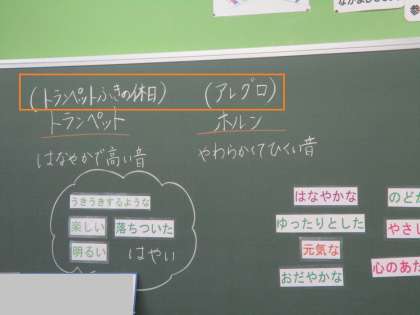 (トランペットふきの休日) (アレグロ)
トランペット ホルン
はなやかで高い音 やわらかくてひくい音
うきうきするような
楽しい 落ちついた
明るい はやい
はなやかな
ゆったりとした
元気な
おだやかな
のど
やさし
心のあた